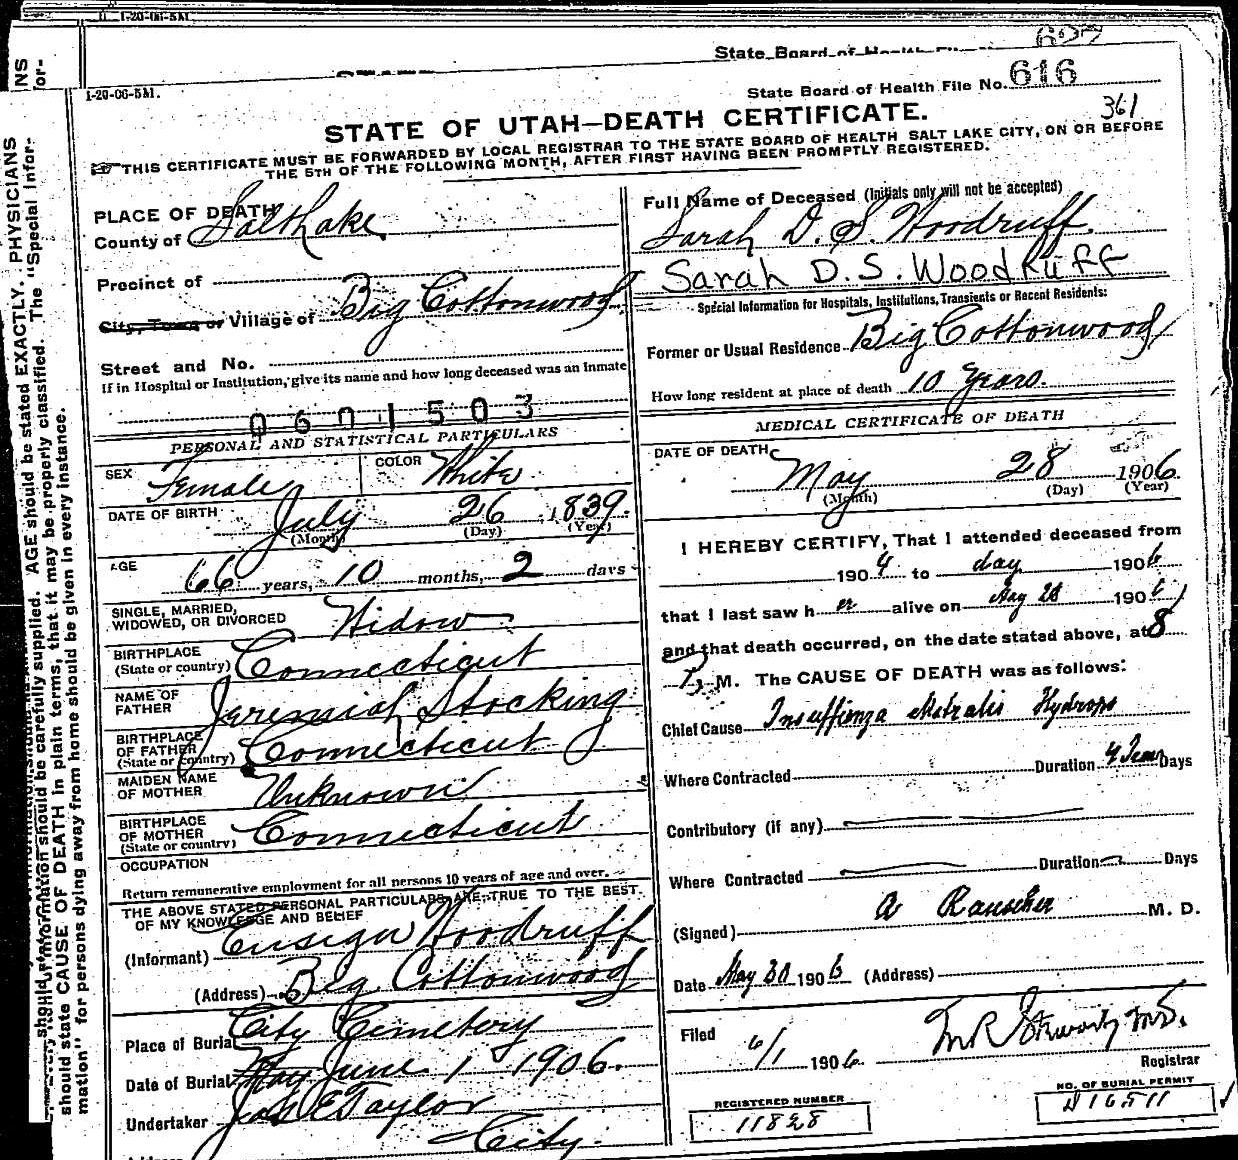 1-20-06-5M.
State Board of Health File No. 616
361
STATE OF UTAH—DEATH CERTIFICATE.
THIS CERTIFICATE MUST BE FORWARDED BY LOCAL REGISTRAR TO THE STATE BOARD OF HEALTH SALT LAKE CITY, ON OR BEFORE
THE 5TH OF THE FOLLOWING MONTH, AFTER FIRST HAVING BEEN PROMPTLY REGISTERED.
PLACE OF DEATH
County of Salt Lake
Precinct of
City, Town or Village of Big Cottonwood
Street and No.
If in Hospital or Institution, give its name and how long deceased was an inmate
0601503
PERSONAL AND STATISTICAL PARTICULARS
SEX Female COLOR White
DATE OF BIRTH July 26 1839.
(Month) (Day) (Year)
AGE 66 years, 10 months, 2 days
SINGLE, MARRIED,
WIDOWED, OR DIVORCED Widow
BIRTHPLACE
(State or country) Connecticut
NAME OF
FATHER Jeremiah Stocking
BIRTHPLACE
OF FATHER
(State or country) Connecticut
MAIDEN NAME
OF MOTHER Unknown
BIRTHPLACE
OF MOTHER
(State or country) Connecticut
OCCUPATION
Return remunerative employment for all persons 10 years of age and over.
THE ABOVE STATED PERSONAL PARTICULARS ARE TRUE TO THE BEST
OF MY KNOWLEDGE AND BELIEF
(Informant) Ensign Woodruff
(Address) Big Cottonwood
Place of Burial City Cemetery
Date of Burial May June 1 1906.
Undertaker Jos E Taylor
City.
Full Name of Deceased (Initials only will not be accepted)
Sarah D. S. Woodruff.
Sarah D.S. Woodruff
Special Information for Hospitals, Institutions, Transients or Recent Residents:
Former or Usual Residence Big Cottonwood
How long resident at place of death 10 Years.
MEDICAL CERTIFICATE OF DEATH
DATE OF DEATH
May 28 1906
(Month) (Day) (Year)
I HEREBY CERTIFY, That I attended deceased from
1904 to day 1906
that I last saw her alive on May 28 1906
and that death occurred, on the date stated above, at 8
P. M. The CAUSE OF DEATH was as follows:
Chief Cause Hydrops
Where Contracted Duration 4 Years Days
Contributory (if any)
Where Contracted Duration Days
(Signed) A Rauscher M. D.
Date May 30 1906 (Address)
Filed 6/1 1906
Registrar
REGISTERED NUMBER
11828
NO. OF BURIAL PERMIT
D16511
AGE should be stated EXACTLY. PHYSICIANS
should state CAUSE OF DEATH in plain terms, that it may be properly classified. The "Special Infor-
mation" for persons dying away from home should be given in every instance.